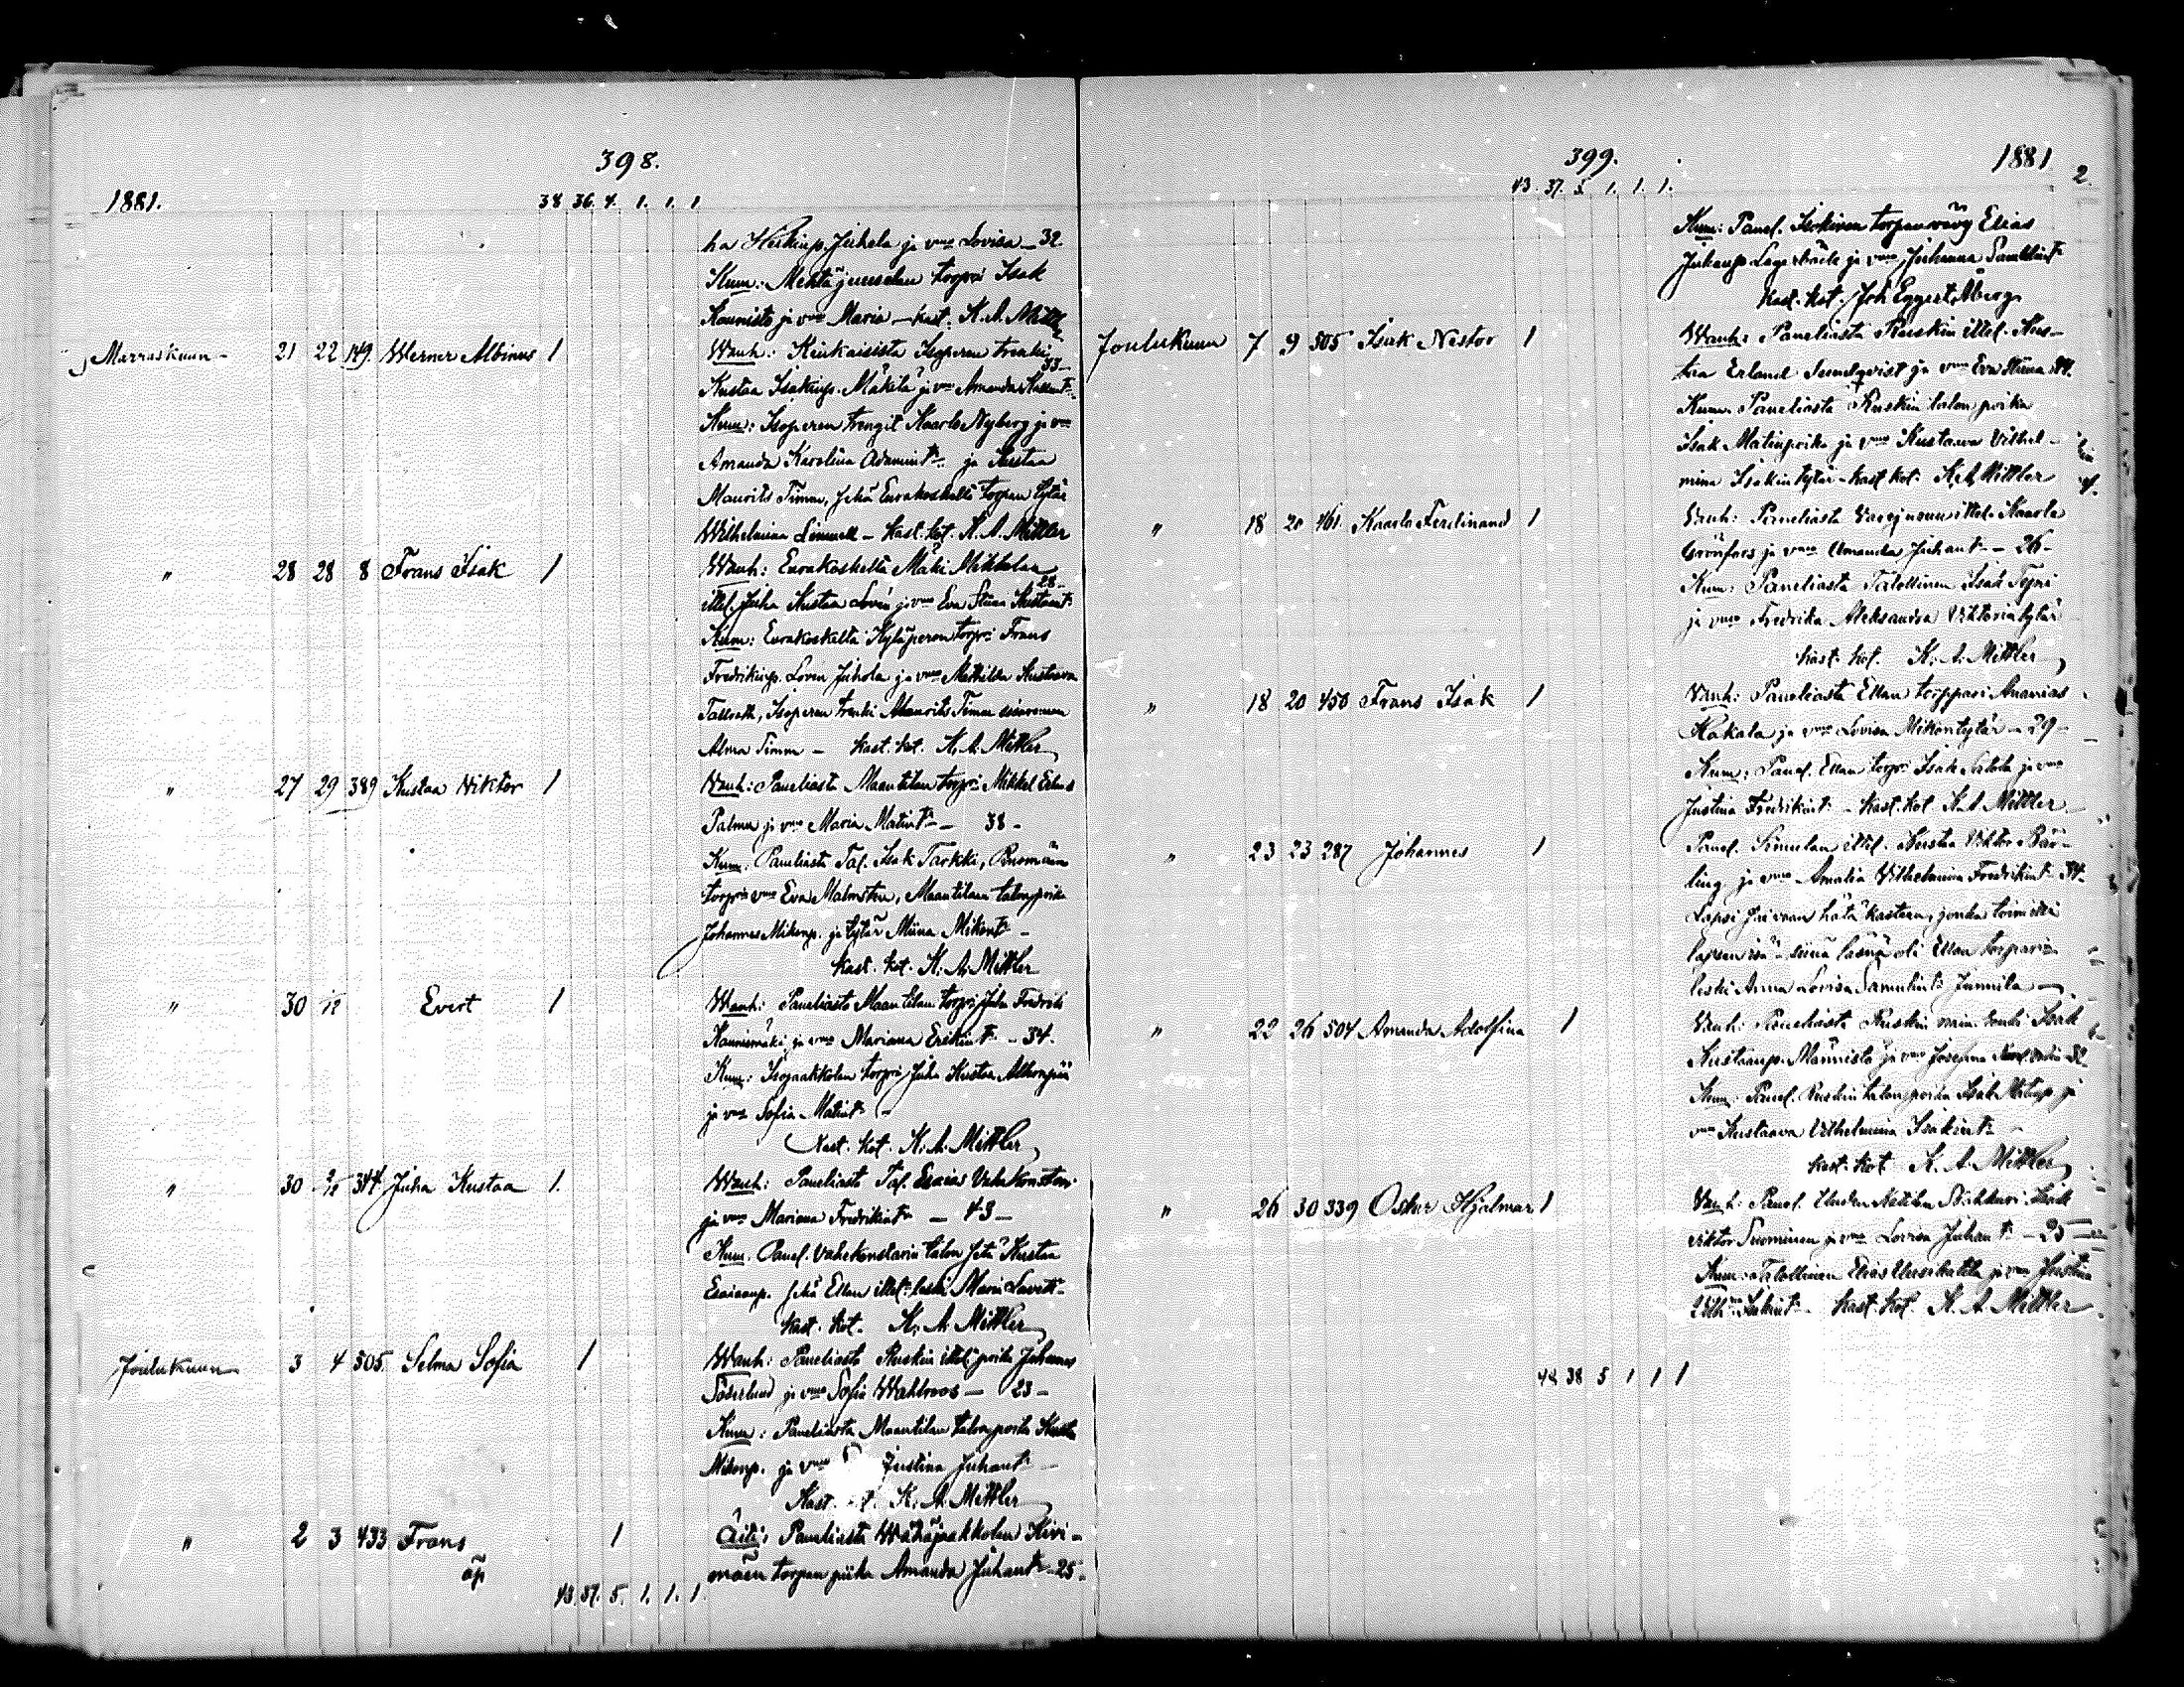 398.
1881.
38. 36. 4. 1. 1. 1
ha Heikinp. Juhela ja vmo Lovisa - 32.
Kum: Mehtäjuuselan torpri Isak
Kaunisto ja vmo Maria - kast. K. A. Mittler
Marraskuun - 21 22 149. Werner Albinus 1
Wanh: Kiukaisista Isoperen trenki
Kustaa Isakinp. Mäkilä ja vmo Amanda 33-
Kum: Isoperen trengit Kaarlo Nyberg ja vmo
Amanda Karolina Adamint. ja Kustaa
Maurits Timm, Jehä Eurakoskelta torpan tytär
Wilhelmina Limnell - Kast. kot. K. A. Mittler
" 28 28 8 Frans Isak 1
Wanh: Eurakoskelta Mäki Mikkolan
ittel. Juha Kustaa Lovin ja vmo Eva Stina Kustaant. 28-
Kum: Eurakoskelta Kyläperen torpr: Frans
Fredrikinp. Lovin Juhola ja vmo Mathilda Kustaava
Isoperen trenki Maurits Timm
Alma Timm - Kast. kot. K. A. Mittler
" 27 29 389 Kustaa Viktor 1
Wanh: Paneliasta Maantilan torpr: Mikkel
Palmu ja vmo Maria Matint - 38 -
Kum: Paneliasta Tal. Isak Tarkki,
torpri vmo Eva Malmsten, Maantilan talonpoika
Johannes Mikonp. ja tytär Miina Mikont -
Kast. kot. K. A. Mittler
" 30 1/12 Evert 1
Wanh: Paneliasta Maantilan torpri Juha Fredrik
Kaunismäki ja vmo Mariana Erikint - 34.
Kum: Isojaakkolan torpri Juha Kustaa
ja vmo Sofia Matint -
Kast. kot. K. A. Mittler
" 30 2/12 344. Juha Kustaa 1.
Wanh: Paneliasta Tal. Esaias Vähäkonstari
ja vmo Mariana Fredrikint - 43 -
Kum. Panel. Vähäkonstarin talon Jehä Kustaa
Esaianp. Jehä Ellan ittel. leski Maria
Kast. kot. K. A. Mittler
Joulukuun 3 4 505. Selma Sofia 1
Wanh: Paneliasta Ruskin ittel. poika Johannes
Söderlund ja vmo Sofia Wahlroos - 23 -
Kum: Paneliasta Maantilan talonpoika Kusta
Mikonp. ja vmo Justina Juhant -
Kast. K. A. Mittler
" 2 3 433 Frans 1
äp
Äiti: Paneliasta Wähäjaakkolan Kivi-
mäen torpan piika Amanda Juhant - 25 -
43. 37. 5. 1. 1. 1.
399.
1881
2.
43. 37. 5. 1. 1. 1.
Kum: Panel. torpanvävy Elias
Juhanp. Lagerbäck ja vmo Johanna Samulint
Kast. kot. Joh Eggert Åberg
Joulukuun 7 9 505 Isak Nestor 1
Wanh: Paneliasta Ruskin ittel. Kus-
taa Erland Sundqvist ja vmo Eva Stiina 34.
Kum. Paneliasta Ruskin talon poika
Isak Matinpoika ja vmo Kustaava Vilhel-
mina Isakintytär - kast. kot. K. A. Mittler
" 18 20 461 Kaarlo Ferdinand 1
Vanh: Paneliasta ittel. Kaarlo
Grönfors ja vmo Amanda Juhant - 26 -
Kum: Paneliasta Talollinen Isak
ja vmo Fredrika Aleksandra Viktoriatytär
Kast. kot. K. A. Mittler
" 18 20 450 Frans Isak 1
Vanh: Paneliasta Ellan torppari Ananias
Kakala ja vmo Lovisa Mikontytär - 29 -
Kum: Panel. Ellan torpr: Isak ja vmo
Justina Fredrikint - Kast. kot. K. A. Mittler
" 23 23 287 Johannes 1
Panel. Simulan ittel. Kustaa Viktor Bär-
ling ja vmo Amalia Vilhelmiina Fredrikint 34.
Lapsi sai vaan hätäkasteen, jonka toimitti
lapsen isä - siinä läsnä oli Ellan torparin
leski Anna Lovisa Samulint: Junnila -
" 22 26 504 Amanda Adolfina 1
Vanh: Paneliasta Ruskin Isak
Kustaanp. Männistö ja vmo Josefina 32-
Kum: Panel. Ruskin talonpoika Isak Matinp. ja
vmo Kustaava Vilhelmina Isakint -
Kast. kot. K. A. Mittler
" 26 30 339 Oskar Hjalmar 1
Vanh: Panel. Isak
Viktor Suominen ja vmo Lovisa Juhant - 25 -
Kum: Talollinen Elias ja vmo Justina
Vilh. Kast. kot. K. A. Mittler
48 38 5 1 1 1